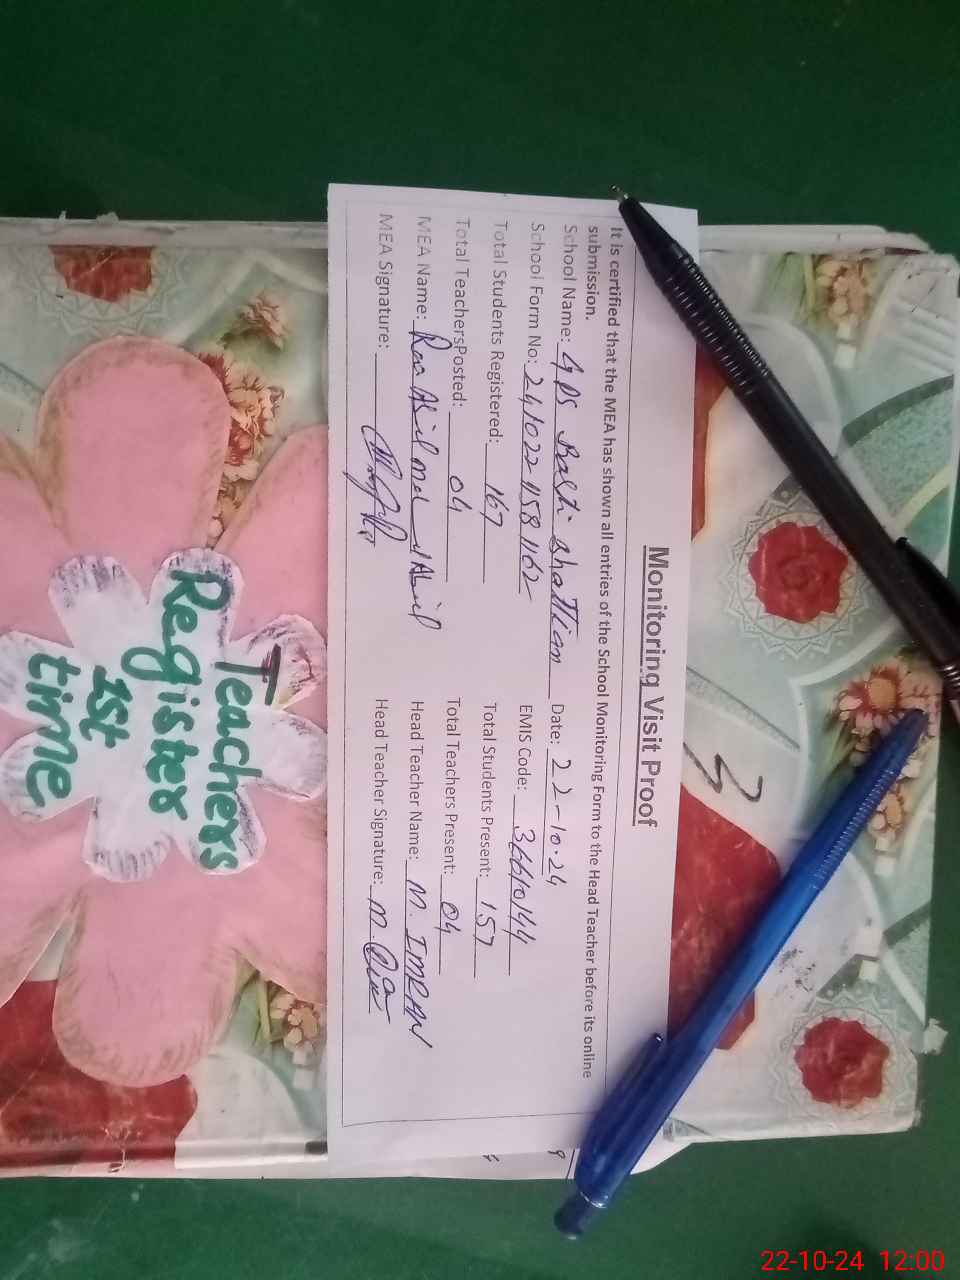 Monitoring Visit Proof
It is certified that the MEA has shown all entries of the School Monitoring Form to the Head Teacher before its online
submission.
School Name: GPS Basti Bhattian Date: 22-10-24
School Form No: 241022458162 EMIS Code: 36610144
Total Students Registered: 167 Total Students Present: 157
Total TeachersPosted: 04 Total Teachers Present: 04
MEA Name: Head Teacher Name: M. IMRAN
MEA Signature: Head Teacher Signature: M.
Teachers
Register
1st
time
3
22-10-24 12:00